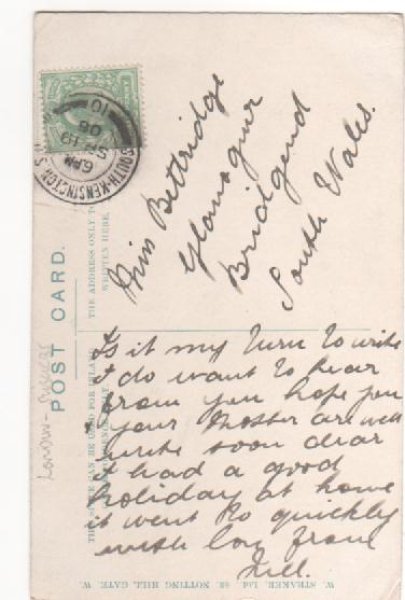 SOUTH-KENSINGTON. S.W.
6 PM
SP 19
08
10
Miss Bettridge
Glanogwr
Bridgend
South Wales.
POST CARD.
THE ADDRESS ONLY TO BE
WRITTEN HERE.
London
Is it my turn to write
I do want to hear
from you hope you
& your Mother are well
write soon dear
I had a good
holiday at home
it went so quickly
with love from
Nell.
W. STRAKER Ltd 82 NOTTING HILL GATE, W.